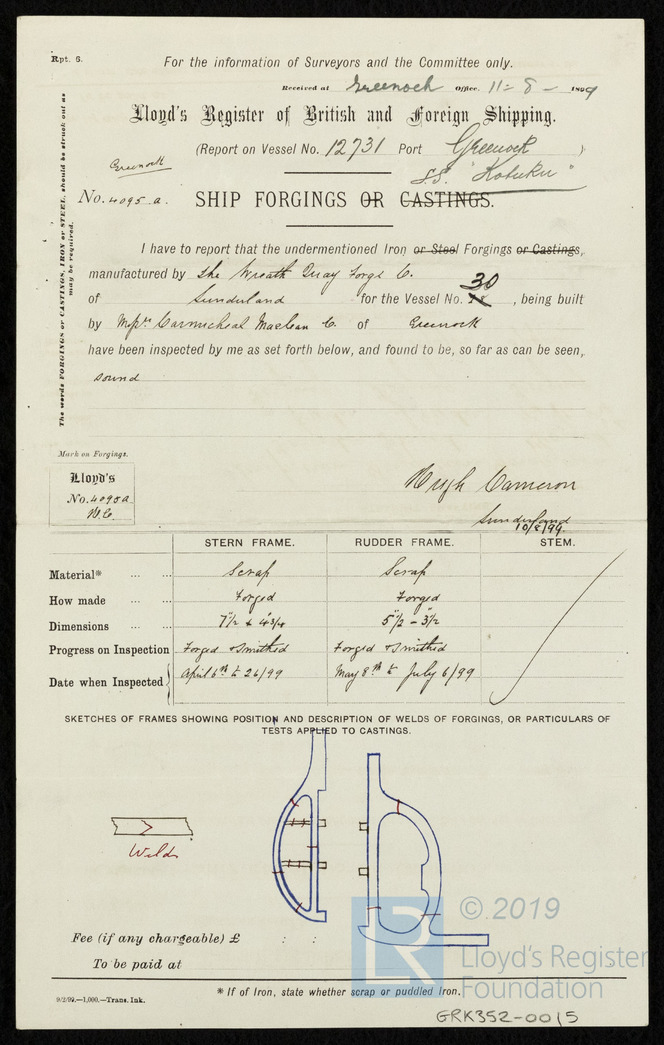 Rpt. 6.
For the information of Surveyors and the Committee only.
Received at Greenock Office. 11-8-1899
Lloyd's Register of British and Foreign Shipping.
(Report on Vessel No. 12731 Port Greenock )
S.S. "Kotuku"
Greenock
No. 4095 a. SHIP FORGINGS OR CASTINGS.
The words FORGINGS or CASTINGS, IRON or STEEL, should be struck out as
may be required.
I have to report that the undermentioned Iron or Steel Forgings or Castings,
manufactured by The Wreath Quay Forge Co.
of Sunderland for the Vessel No. 30, being built
by Messrs Carmichael Maclean Co. of Greenock
have been inspected by me as set forth below, and found to be, so far as can be seen,
sound
Mark on Forgings.
Lloyd's
No. 4095a
H.C.
Hugh Cameron
Sunderland
10/8/99.
STERN FRAME. RUDDER FRAME. STEM.
Material* ... ... Scrap Scrap
How made ... ... Forged Forged
Dimensions ... ... 7 1/2 x 4 3/4 5 1/2 - 3 1/2
Progress on Inspection Forged & Smithed Forged & Smithed
Date when Inspected April 6th to 26/99 May 8th to July 6/99
SKETCHES OF FRAMES SHOWING POSITION AND DESCRIPTION OF WELDS OF FORGINGS, OR PARTICULARS OF
TESTS APPLIED TO CASTINGS.
Welds
Fee (if any chargeable) £ : :
To be paid at
* If of Iron, state whether scrap or puddled Iron.
9/2/99.—1,000.—Trans. Ink.
LR
© 2019
Lloyd's Register
Foundation
GRK352-0015